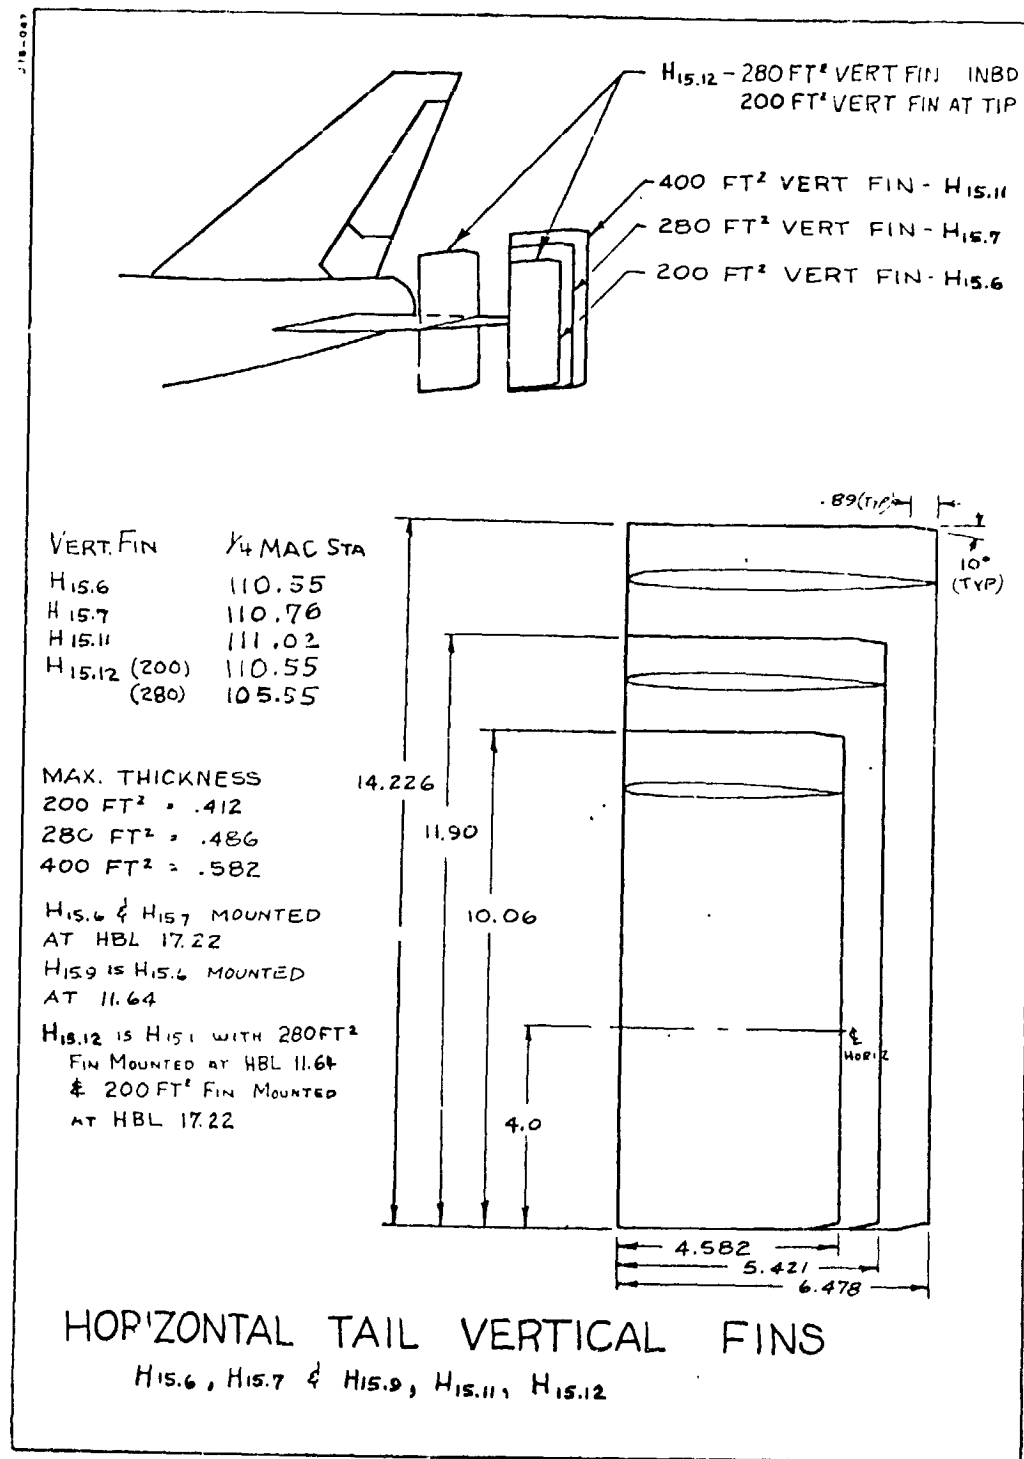 H15.12 - 280 FT² VERT FIN INBD
200 FT² VERT FIN AT TIP
400 FT² VERT FIN - H15.11
280 FT² VERT FIN - H15.7
200 FT² VERT FIN - H15.6
.89 (TYP)
10°
(TYP)
VERT. FIN 1/4 MAC STA
H15.6 110.55
H15.7 110.76
H15.11 111.02
H15.12 (200) 110.55
(280) 105.55
MAX. THICKNESS
200 FT² = .412
280 FT² = .486
400 FT² = .582
H15.6 & H15.7 MOUNTED
AT HBL 17.22
H15.9 IS H15.6 MOUNTED
AT 11.64
H15.12 IS H15.1 WITH 280 FT²
FIN MOUNTED AT HBL 11.64
& 200 FT² FIN MOUNTED
AT HBL 17.22
14.226
11.90
10.06
4.0
℄
HORIZ
4.582
5.421
6.478
HORIZONTAL TAIL VERTICAL FINS
H15.6, H15.7 & H15.9, H15.11, H15.12